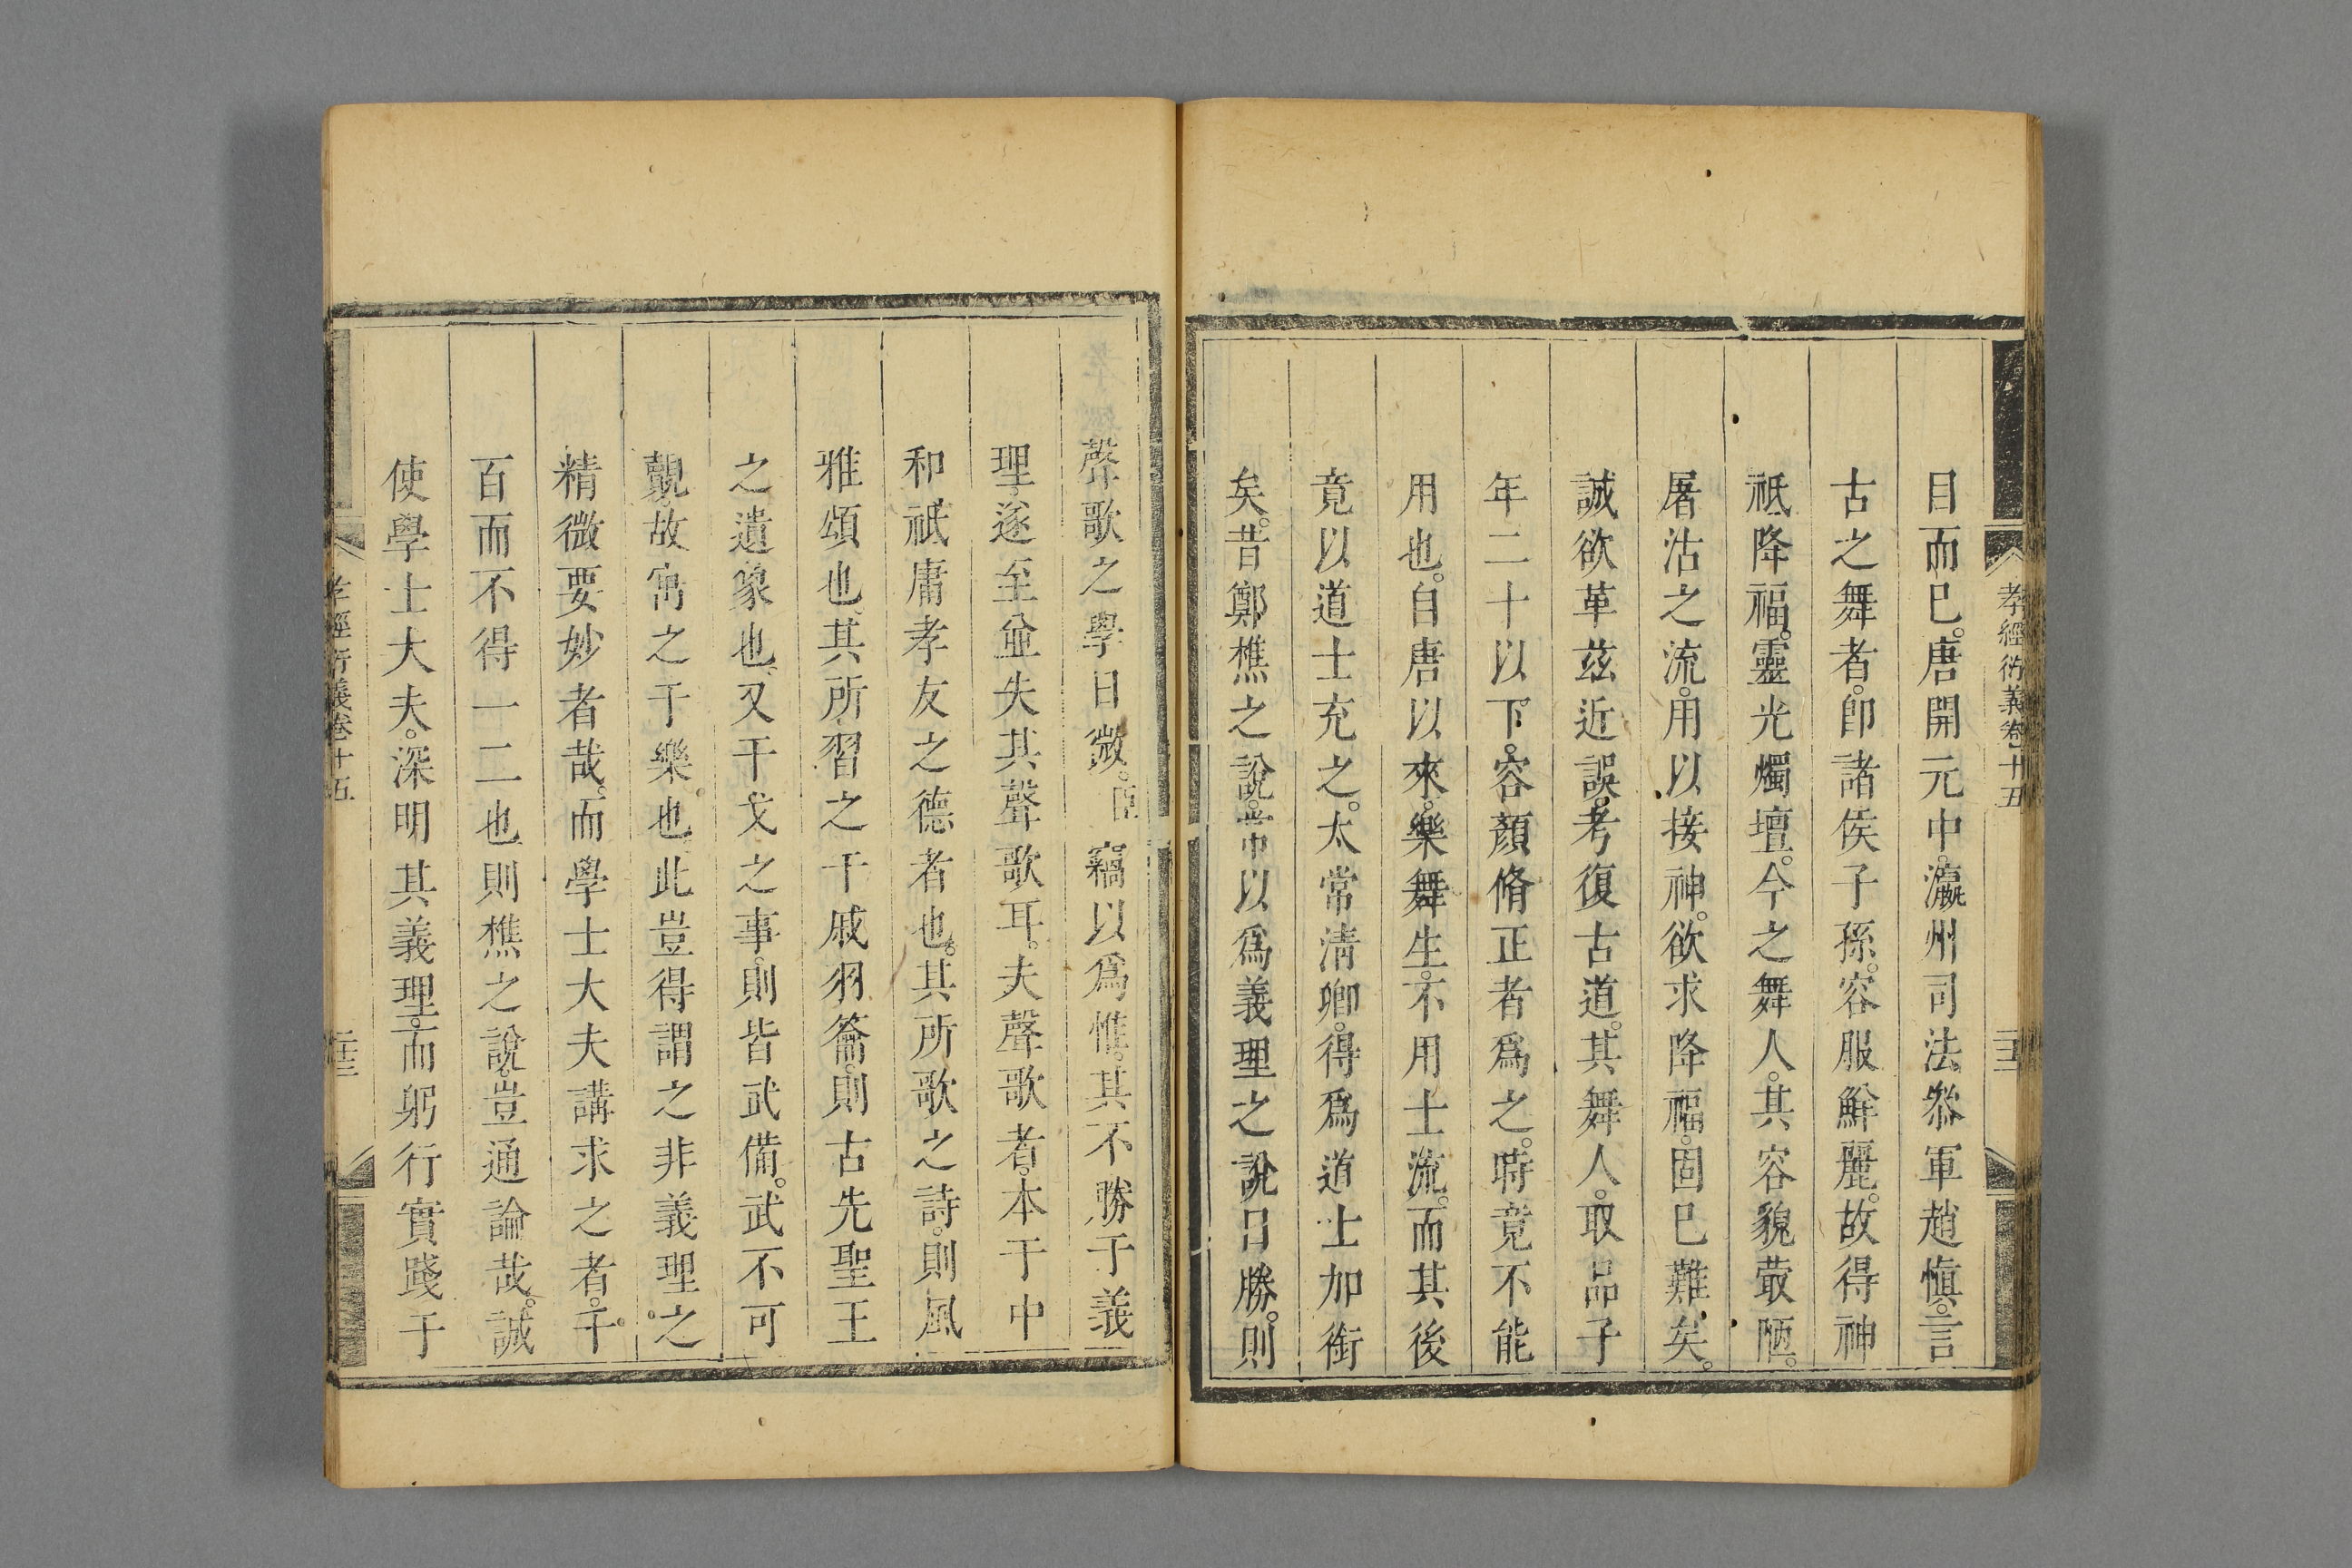 孝經衍義卷十五
目而已。唐開元中。瀛州司法叅軍趙愼。言
古之舞者。卽諸侯子孫。容服鮮麗。故得神
祇降福。靈光燭壇。今之舞人。其容貌蕞陋。
屠沽之流。用以接神。欲求降福。固已難矣。
誠欲革茲近誤。考復古道。其舞人。取品子
年二十以下。容顏脩正者爲之。時竟不能
用也。自唐以來。樂舞生。不用士流。而其後
竟以道士充之。太常淸卿。得爲道士加銜
矣。昔鄭樵之說。以爲義理之說日勝。則
聲歌之學日微。臣竊以爲惟。其不勝于義
理。遂至並失其聲歌耳。夫聲歌者。本于中
和祇庸孝友之德者也。其所歌之詩。則風
雅頌也。其所習之干戚羽籥。則古先聖王
之遺象也。又干戈之事。則皆武備。武不可
覿。故寓之于樂也。此豈得謂之非義理之
精微要妙者哉。而學士大夫講求之者。千
百而不得一二也則樵之說。豈通論哉。誠
使學士大夫。深明其義理。而躬行實踐于
孝經衍義卷十五